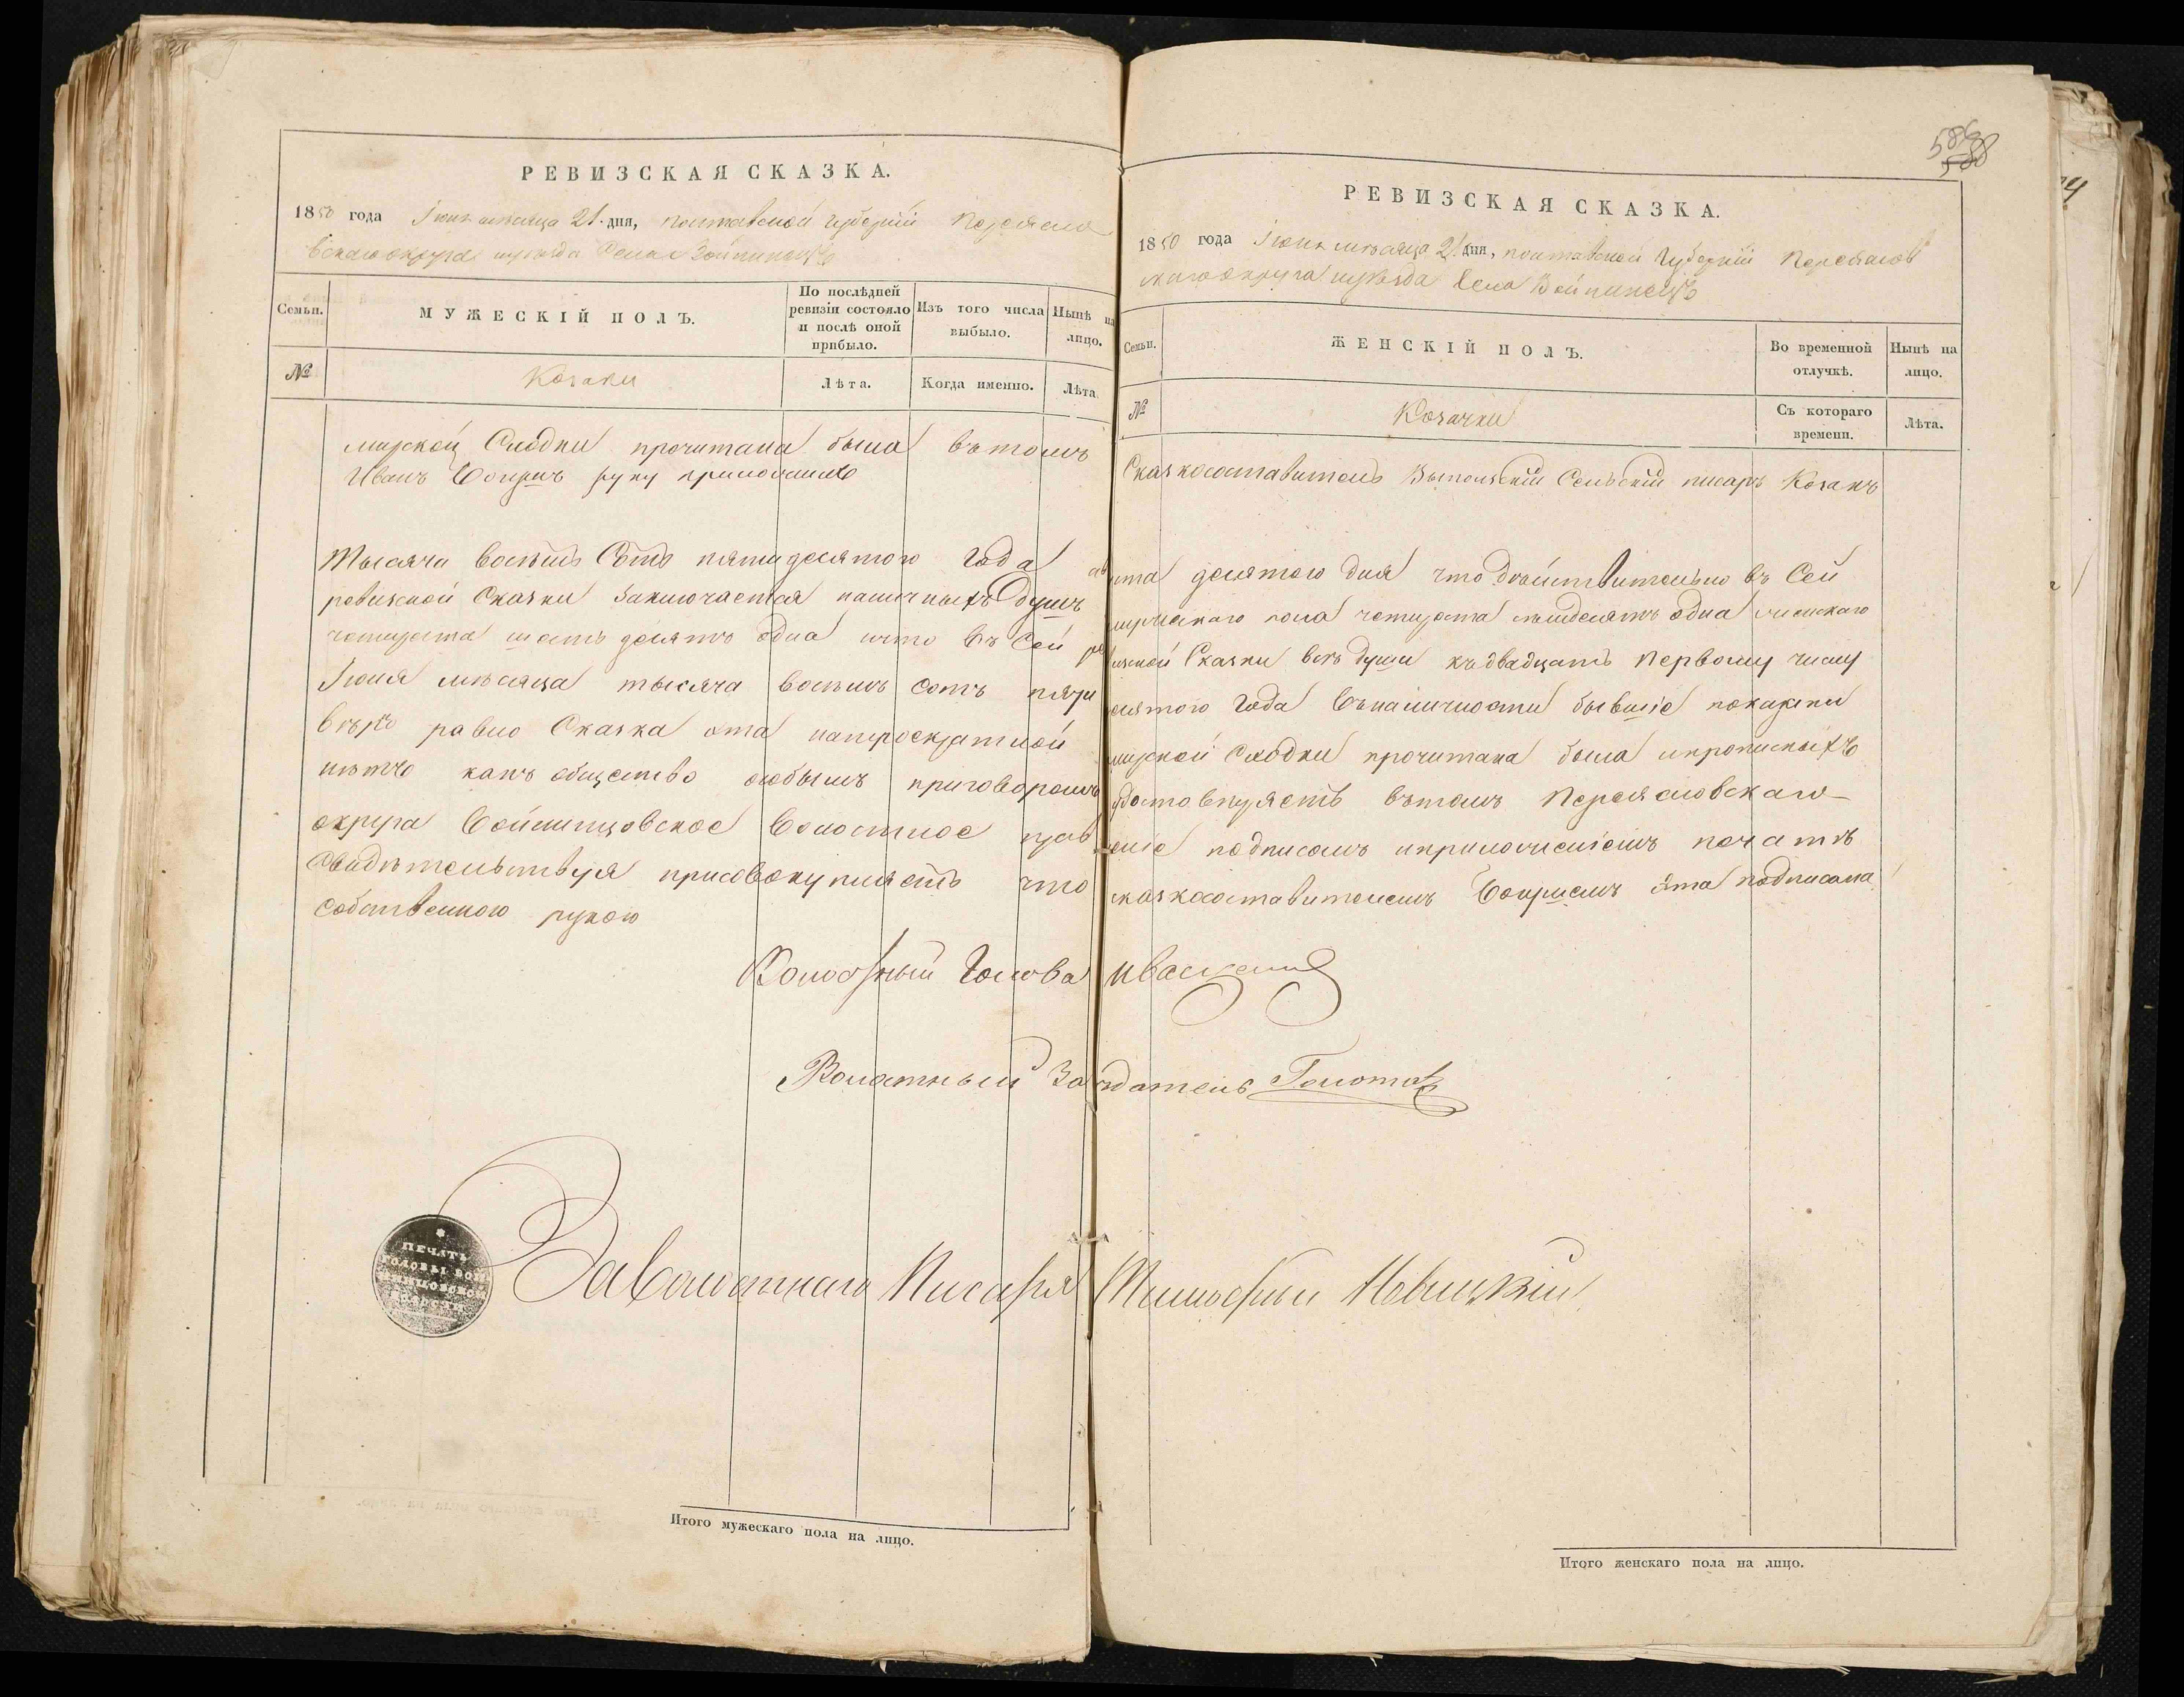 РЕВИЗСКАЯ СКАЗКА.
1850 года Июня мѣсяца 21. дня, Полтавской Губерніи Переясло
вскаго округа и уѣзда Села Войтинецъ
Семьи.
МУЖЕСКІЙ ПОЛЪ.
По послѣдней ревизіи состояло и послѣ оной прибыло.
Изъ того числа выбыло.
Нынѣ на лицо.
№
Козаки
Лѣта.
Когда именно.
Лѣта.
мирской Сходки прочитана была въ томъ
Иванъ руку приложилъ
Тысяча восемь Сотъ пятидесятого Года
ревизской Сказки Заключается наличныхъ Душъ
четыреста шесть десятъ одна и что въ Сей
Іюня мѣсяца тысяча восемь сотъ пяти
вѣрно равно Сказка эта
нѣтъ какъ общество особымъ приговоромъ
округа Войтинцовское Волостное прав
Свидѣтельствуя присовокупляетъ что
собственною рукою
Итого мужескаго пола на лицо.
586
588
РЕВИЗСКАЯ СКАЗКА.
1850 года Июня мѣсяца 21. дня, Полтавской Губерніи Переяслов
скаго округа и уѣзда Села Войтинецъ
Семьи.
ЖЕНСКІЙ ПОЛЪ.
Во временной отлучкѣ.
Нынѣ на лицо.
№
Козачки
Съ котораго времени.
Лѣта.
Сказкосоставитель Сельскій писарь Козакъ
десятого дня что дѣйствительно въ Сей
мужескаго пола четыреста одна женскаго
Сказки всѣ души къ двадцать Первому числу
десятого Года въ наличности бывшіе показаны
мирской Сходки прочитана была и прописныхъ
удостовѣряетъ въ томъ Переясловскаго
леніе подписомъ и приложеніемъ печати
сказкосоставителемъ эта подписана
Волостный Голова
Волостный Засѣдатель Голота
За Волостнаго Писаря Новицкій
ПЕЧАТЬ
ГОЛОВЫ ВОЙ
Итого женскаго пола на лицо.